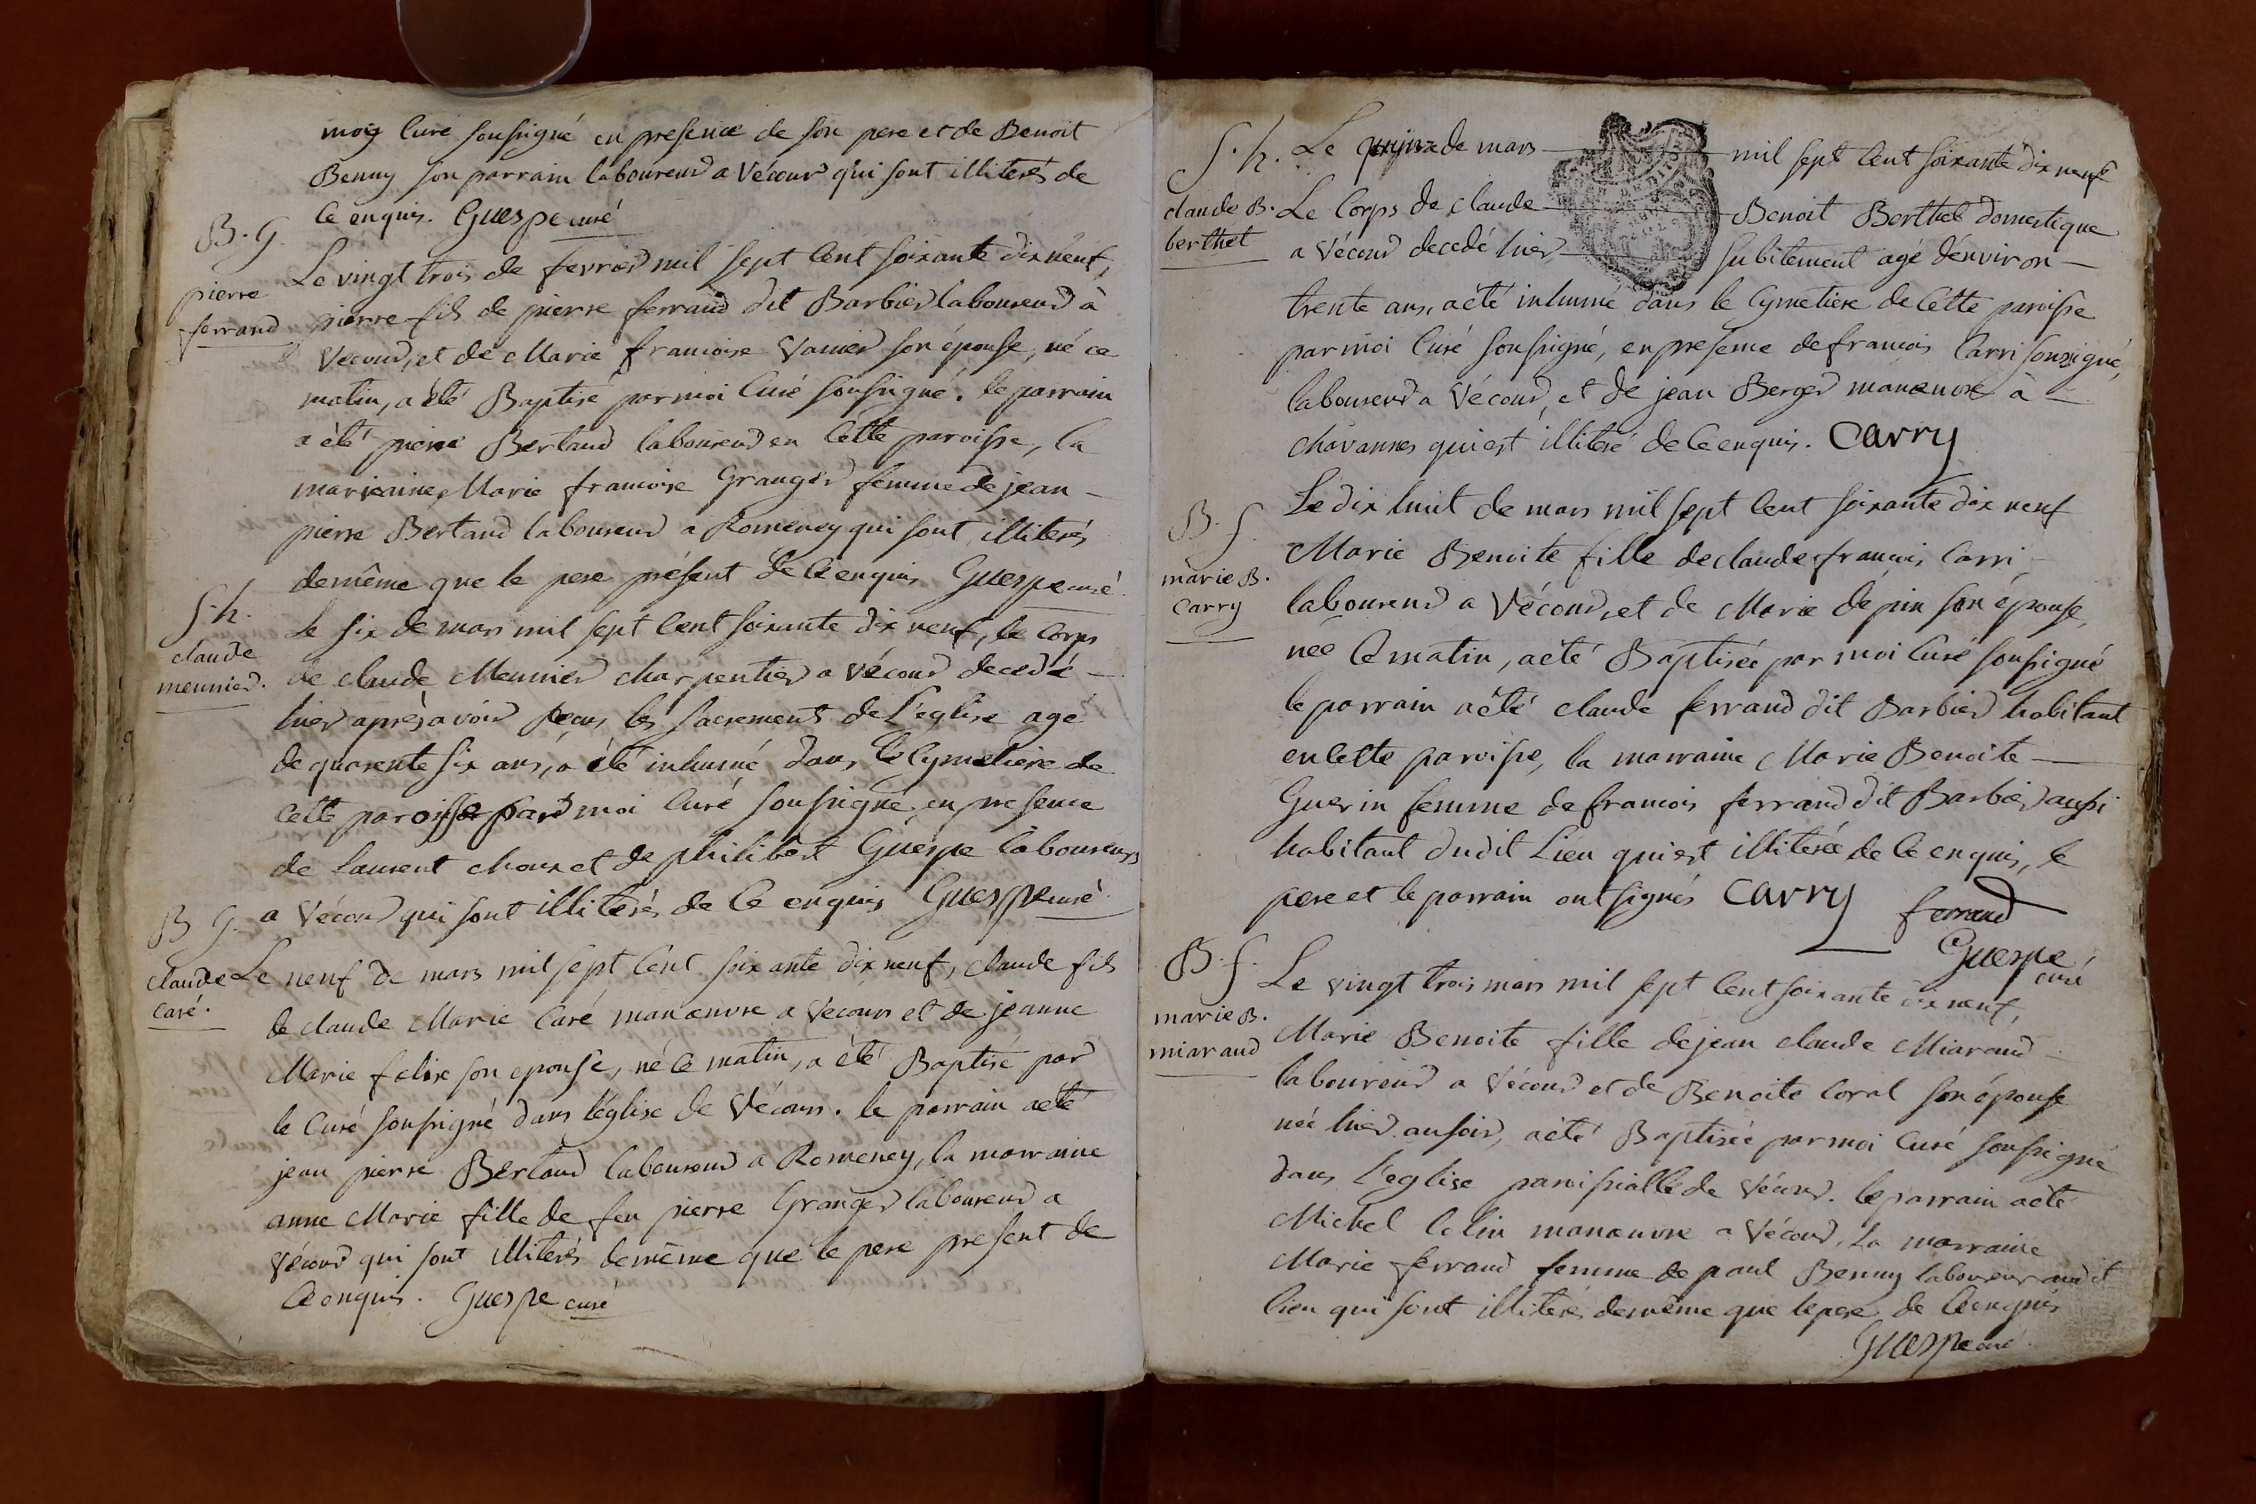 moy Curé soussigné en presence de son pere et de Benoit
Benny son parrain laboureur a Vécour qui sont illiterés de
Ce enquis. Guespe curé
B. G.
pierre
ferrand
Le vingt trois de fevrier mil sept Cent soixante dix neuf,
pierre fils de pierre ferrand dit Barbier laboureur à
Vecour, et de Marie francoise Vanier son épouse, né ce
matin, a èté Baptisé par moi Curé soussigné. le parrain
a èté pierre Bertaud laboureur en Cette paroisse, la
marraine Marie francoise Granger femme de jean –
pierre Bertaud laboureur a Romeney qui sont illiterés
demême que le pere présent de Ce enquis Guespe curé
S. h.
claude
meunier.
Le six de mars mil sept Cent soixante dix neuf, le Corps
de claude Meunier charpentier a Vécour decedé –
hier après avoir recus les sacrements de L'eglise agé
de quarente six ans, a èté inhumé dans le Cymetiere de
Cette paroisse par moi Curé soussigné en presence
de Laurent choux et de philibert Guespe laboureurs
a Vécour qui sont illiterés de Ce enquis Guespe curé
B G.
claude
caré.
Le neuf de mars mil sept Cent soixante dix neuf, claude fils
de claude Marie Caré manœuvre a Vecour et de jeanne
Marie felix son epouse, né Ce matin, a èté Baptisé par
le Curé soussigné dans l'église de Vécour. le parrain a èté
jean pierre Bertaud laboureur a Romeney, la marraine
anne Marie fille de feu pierre Granger laboureur a
Vécour qui sont illiterés demême que le pere present de
Ce enquis. Guespe curé
S. h.
claude B.
berthet
Le quinze de mars mil sept Cent soixante dix neuf
Le Corps de claude Benoit Berthet domestique
a Vécour decedé hier subitement agé d'environ –
trente ans, a èté inhumé dans le Cymetiere de Cette paroisse
par moi Curé soussigné, en presence de francois Carri soussigné,
laboureur a Vécour, et de jean Berger manœuvre à –
chavannes qui est illiteré de Ce enquis. Carry
B. f.
marie B.
Carry
Le dix huit de mars mil sept Cent soixante dix neuf
Marie Benoite fille de claude francois Carri –
laboureur a Vécour et de Marie dépin son épouse,
née Ce matin, a èté Baptisée par moi Curé soussigné
le parrain a èté claude ferrand dit Barbier habitant
en Cette paroisse, la marraine Marie Benoite –
Guerin femme de francois ferrand dit Barbier aussi
habitant dudit Lieu qui est illiterée de Ce enquis, le
pere et le parrain ont signés Carry ferrand
Guespe
curé
B. f.
marie B.
miaraud
Le vingt trois mars mil sept Cent soixante dix neuf,
Marie Benoite fille de jean claude Miaraud –
laboureur a Vécour et de Benoite Coral son épouse
née hier au soir, a èté Baptisée par moi Curé soussigné
dans l'eglise paroissialle de Vécour. le parrain a èté
Michel Colin manœuvre a Vécour, La marraine
Marie ferraud femme de paul Benny laboureur audit
lieu qui sont illiterés demême que le pere de Ce enquis
Guespe curé